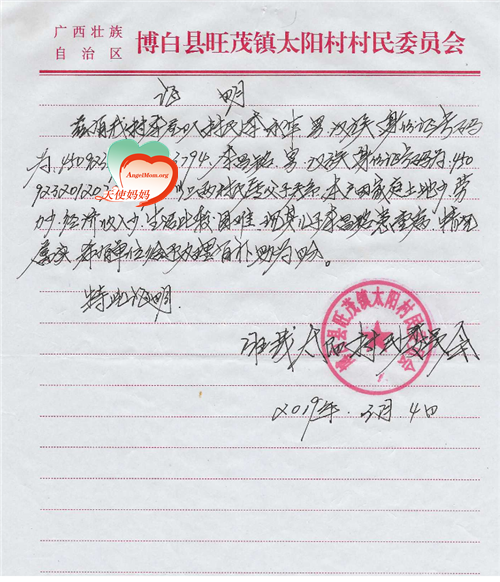 广西壮族
自治区
博白县旺茂镇太阳村村民委员会
证 明
兹有我村 村民李 男 汉族 身份证号码
为: 450923 3794. 李 男 汉族 身份证号码为: 450
923201202 父子关系. 家庭土地少 劳
力少, 经济收入少, 生活比较困难. 现其儿子李 患重病, 情况
属实, 希 单位给予办理 补助为盼。
特此证明.
AngelMom.org
天使妈妈
旺茂太阳村民委员会
博白县旺茂镇太阳村民委员会
2019年.3月.4日